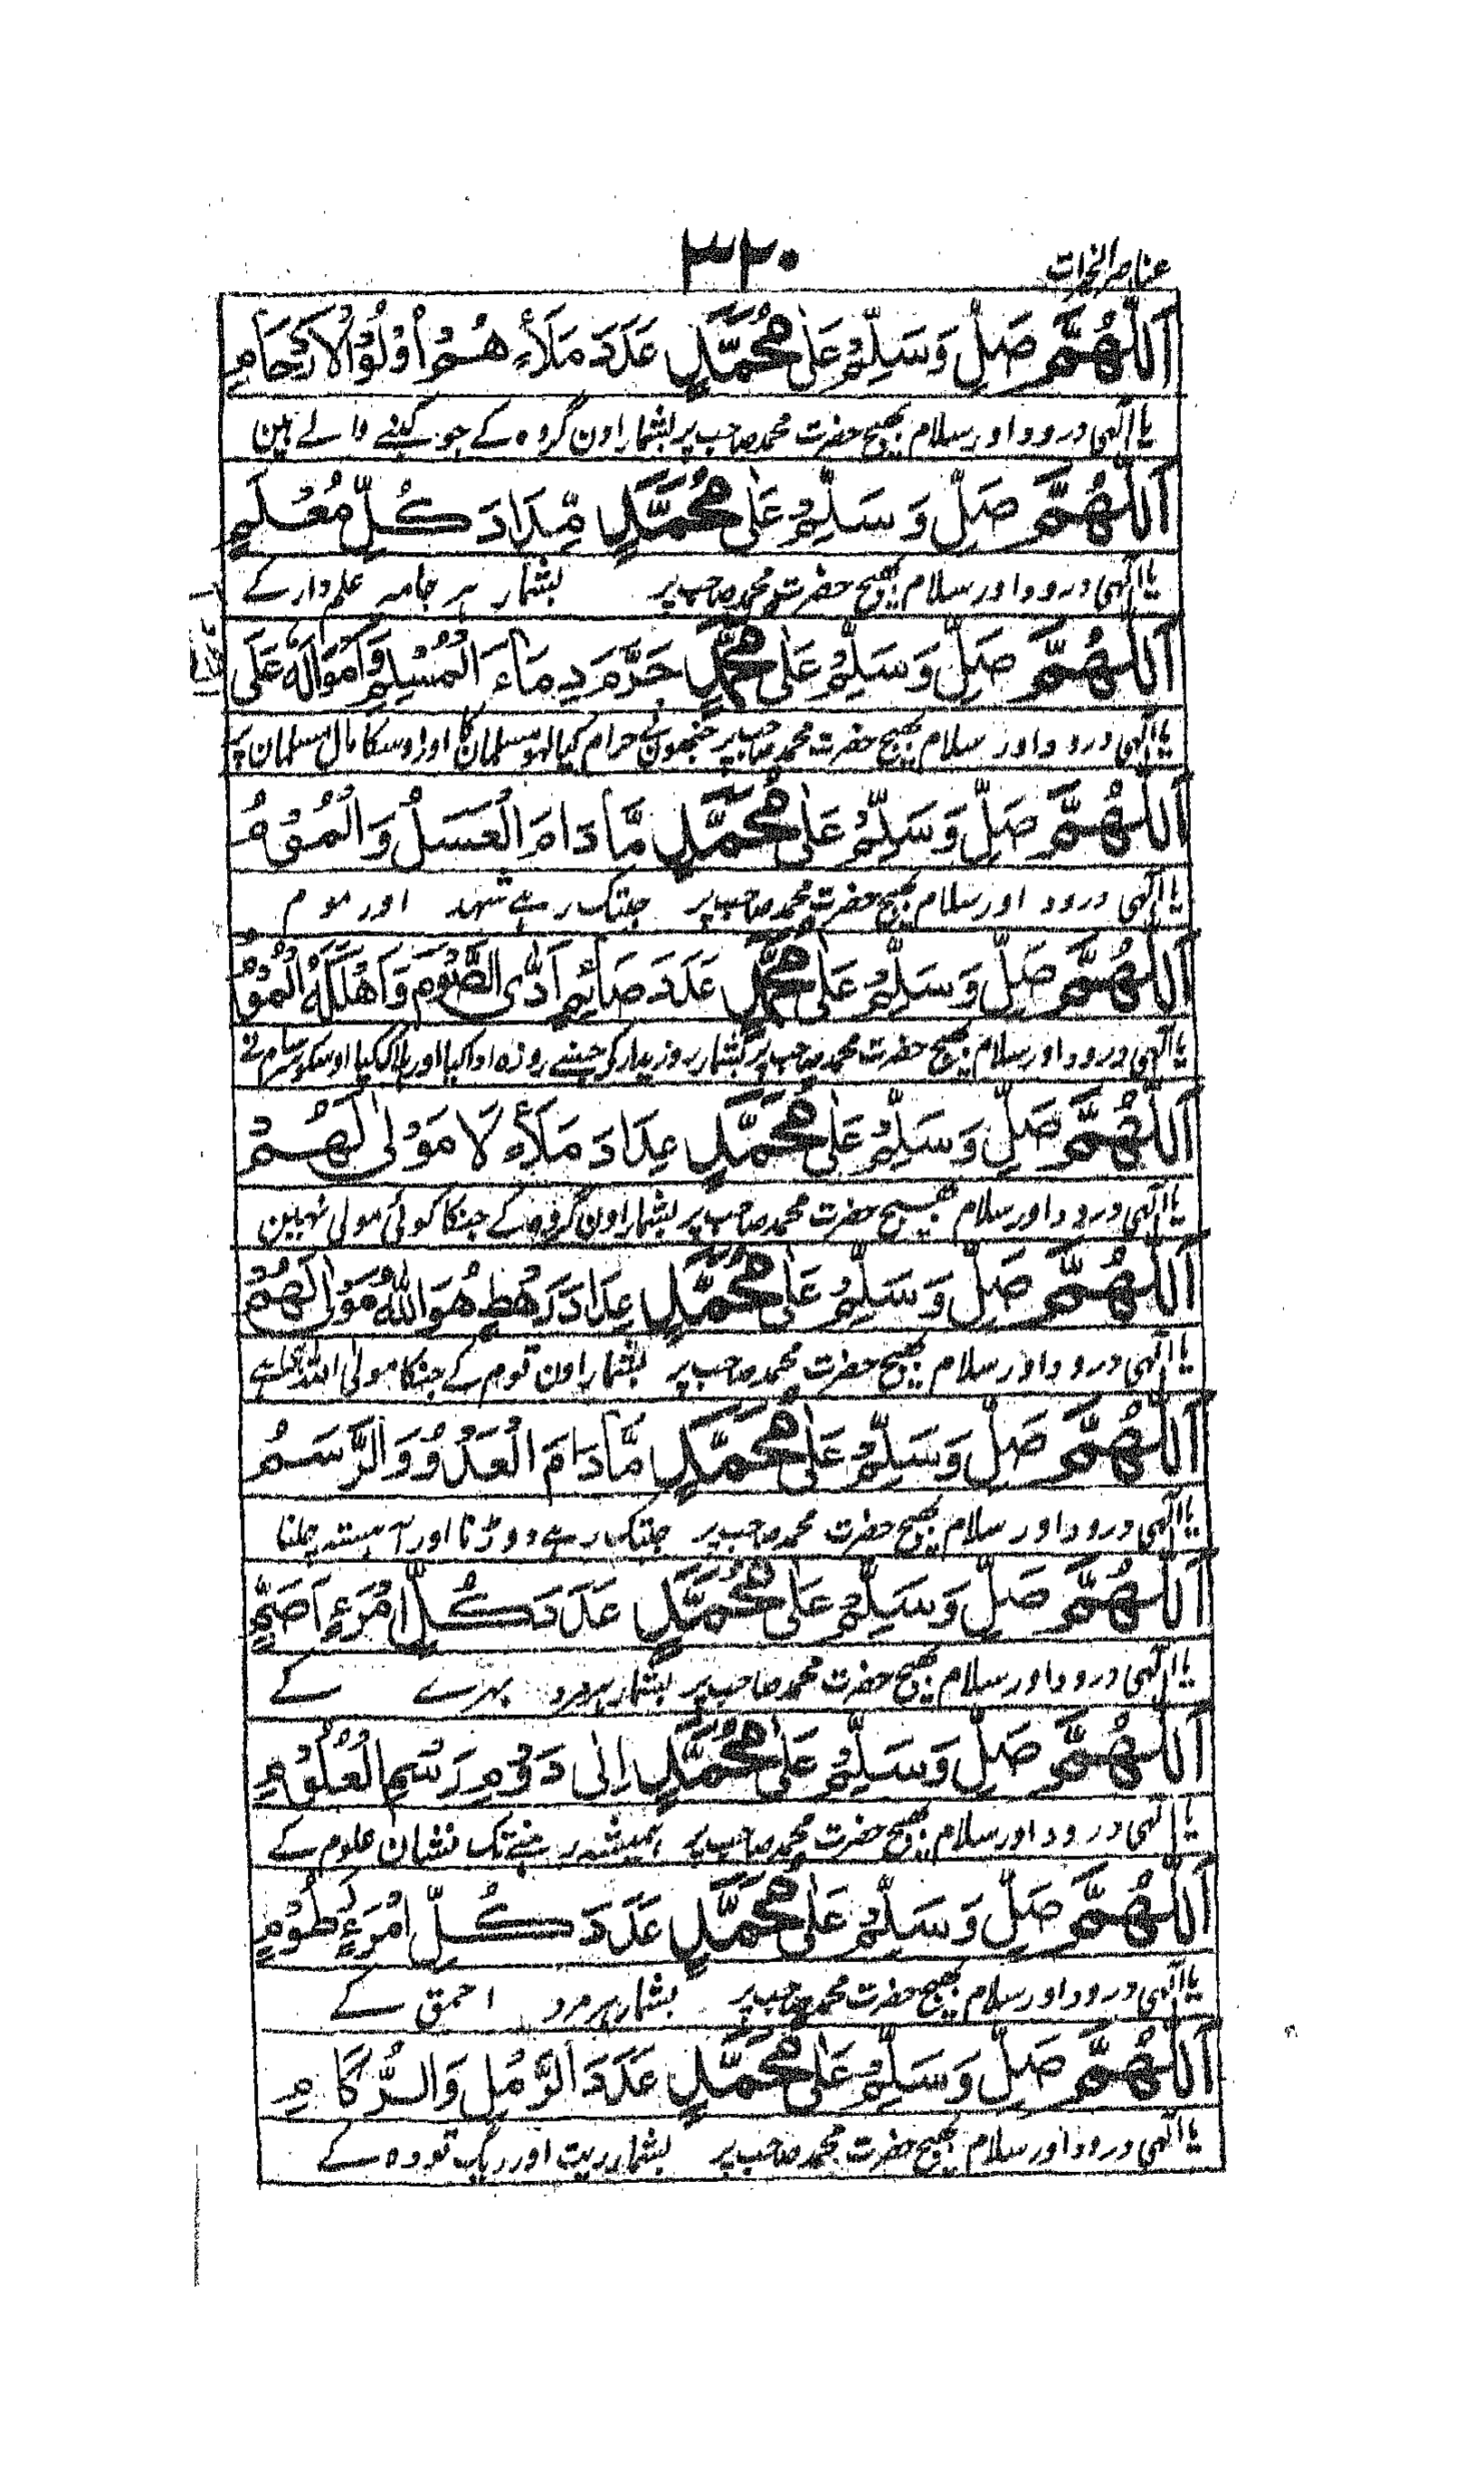 ۳۲۰
عناصر الخیرات
اَللّٰهُمَّ صَلِّ وَسَلِّمْ عَلٰى مُحَمَّدٍ عَدَدَ مَلَأٍ هُمْ اُوْلُوْا الْاَرْحَامِ
یا الٰہی درود اور سلام بھیج حضرت محمد صاحب پر بشمار اون گروہ کے جو کہنے والے ہین
اَللّٰهُمَّ صَلِّ وَسَلِّمْ عَلٰى مُحَمَّدٍ مِّدَادَ كُلِّ مُعْلَمٍ
یا الٰہی درود اور سلام بھیج حضرت محمد صاحب پر بشمار ہر جامہ علمدار کے
اَللّٰهُمَّ صَلِّ وَسَلِّمْ عَلٰى مُحَمَّدٍ حَرَّمَ دِمَاءَ الْمُسْلِمِ وَاَمْوَالَهٗ عَلَى
یا الٰہی درود اور سلام بھیج حضرت محمد صاحب پر جنھون نے حرام کیا لہو مسلمان کا اور اوسکا مال مسلمان پر
اَللّٰهُمَّ صَلِّ وَسَلِّمْ عَلٰى مُحَمَّدٍ مَّادَامَ الْعَسَلُ وَالْمُوْمُ
یا الٰہی درود اور سلام بھیج حضرت محمد صاحب پر جبتک رہے شہد اور موم
اَللّٰهُمَّ صَلِّ وَسَلِّمْ عَلٰى مُحَمَّدٍ عَدَدَ صَائِمٍ اَدَّى الصَّوْمَ وَاَهْلَكَهُ الْمُوْمُ
یا الٰہی درود اور سلام بھیج حضرت محمد صاحب پر بشمار روزیدار کو جنے روزہ ادا کیا اور ہلاک کیا اوسکو سرسام نے
اَللّٰهُمَّ صَلِّ وَسَلِّمْ عَلٰى مُحَمَّدٍ عِدَادَ مَلَأٍ لَا مَوْلٰى لَهُمْ
یا الٰہی درود اور سلام بھیج حضرت محمد صاحب پر بشمار اون گروہ کے جنکا کوئی مولی نہین
اَللّٰهُمَّ صَلِّ وَسَلِّمْ عَلٰى مُحَمَّدٍ عِدَادَ رَهْطٍ هُوَ اللّٰهُ مَوْلٰهُمْ
یا الٰہی درود اور سلام بھیج حضرت محمد صاحب پر بشمار اون قوم کے جنکا مولی اللہ تعالی ہے
اَللّٰهُمَّ صَلِّ وَسَلِّمْ عَلٰى مُحَمَّدٍ مَّادَامَ الْعَدْوُ وَالرَّسَمُ
یا الٰہی درود اور سلام بھیج حضرت محمد صاحب پر جبتک رہے دوڑنا اور آہستہ چلنا
اَللّٰهُمَّ صَلِّ وَسَلِّمْ عَلٰى مُحَمَّدٍ عَدَدَ كُلِّ امْرَءٍ اَصَمٍّ
یا الٰہی درود اور سلام بھیج حضرت محمد صاحب پر بشمار ہر مرد بہرے کے
اَللّٰهُمَّ صَلِّ وَسَلِّمْ عَلٰى مُحَمَّدٍ اِلٰى دَوْمِ رَسْمِ الْعُلُوْمِ
یا الٰہی درود اور سلام بھیج حضرت محمد صاحب پر ہمیشہ رہنے تک نشان علوم کے
اَللّٰهُمَّ صَلِّ وَسَلِّمْ عَلٰى مُحَمَّدٍ عَدَدَ كُلِّ امْرَءٍ
یا الٰہی درود اور سلام بھیج حضرت محمد صاحب پر بشمار ہر مرد احمق کے
اَللّٰهُمَّ صَلِّ وَسَلِّمْ عَلٰى مُحَمَّدٍ عَدَدَ الرَّمْلِ وَالرُّكَامِ
یا الٰہی درود اور سلام بھیج حضرت محمد صاحب پر بشمار ریت اور ریگ تودہ کے